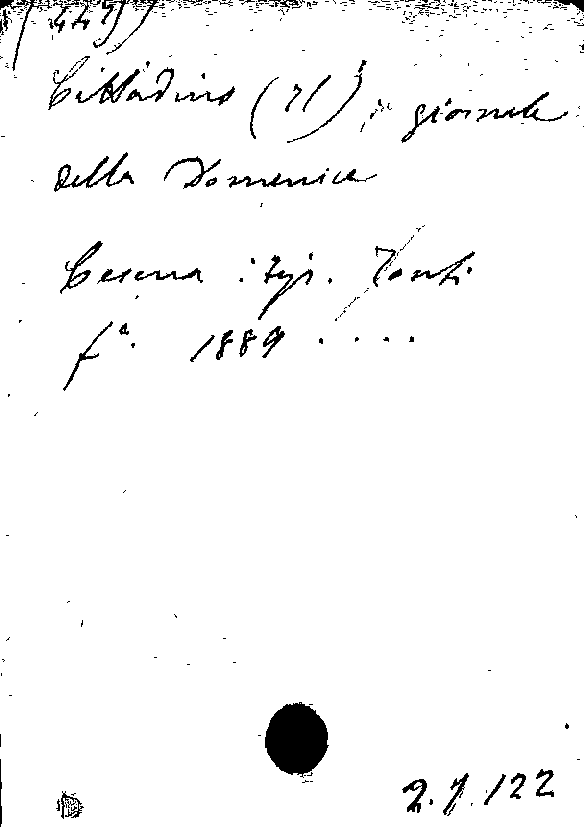 Cittadino (Il), giornale
della Domenica
Cesena : Typ. Tonti
fº. 1889 . . . .
2.7.122